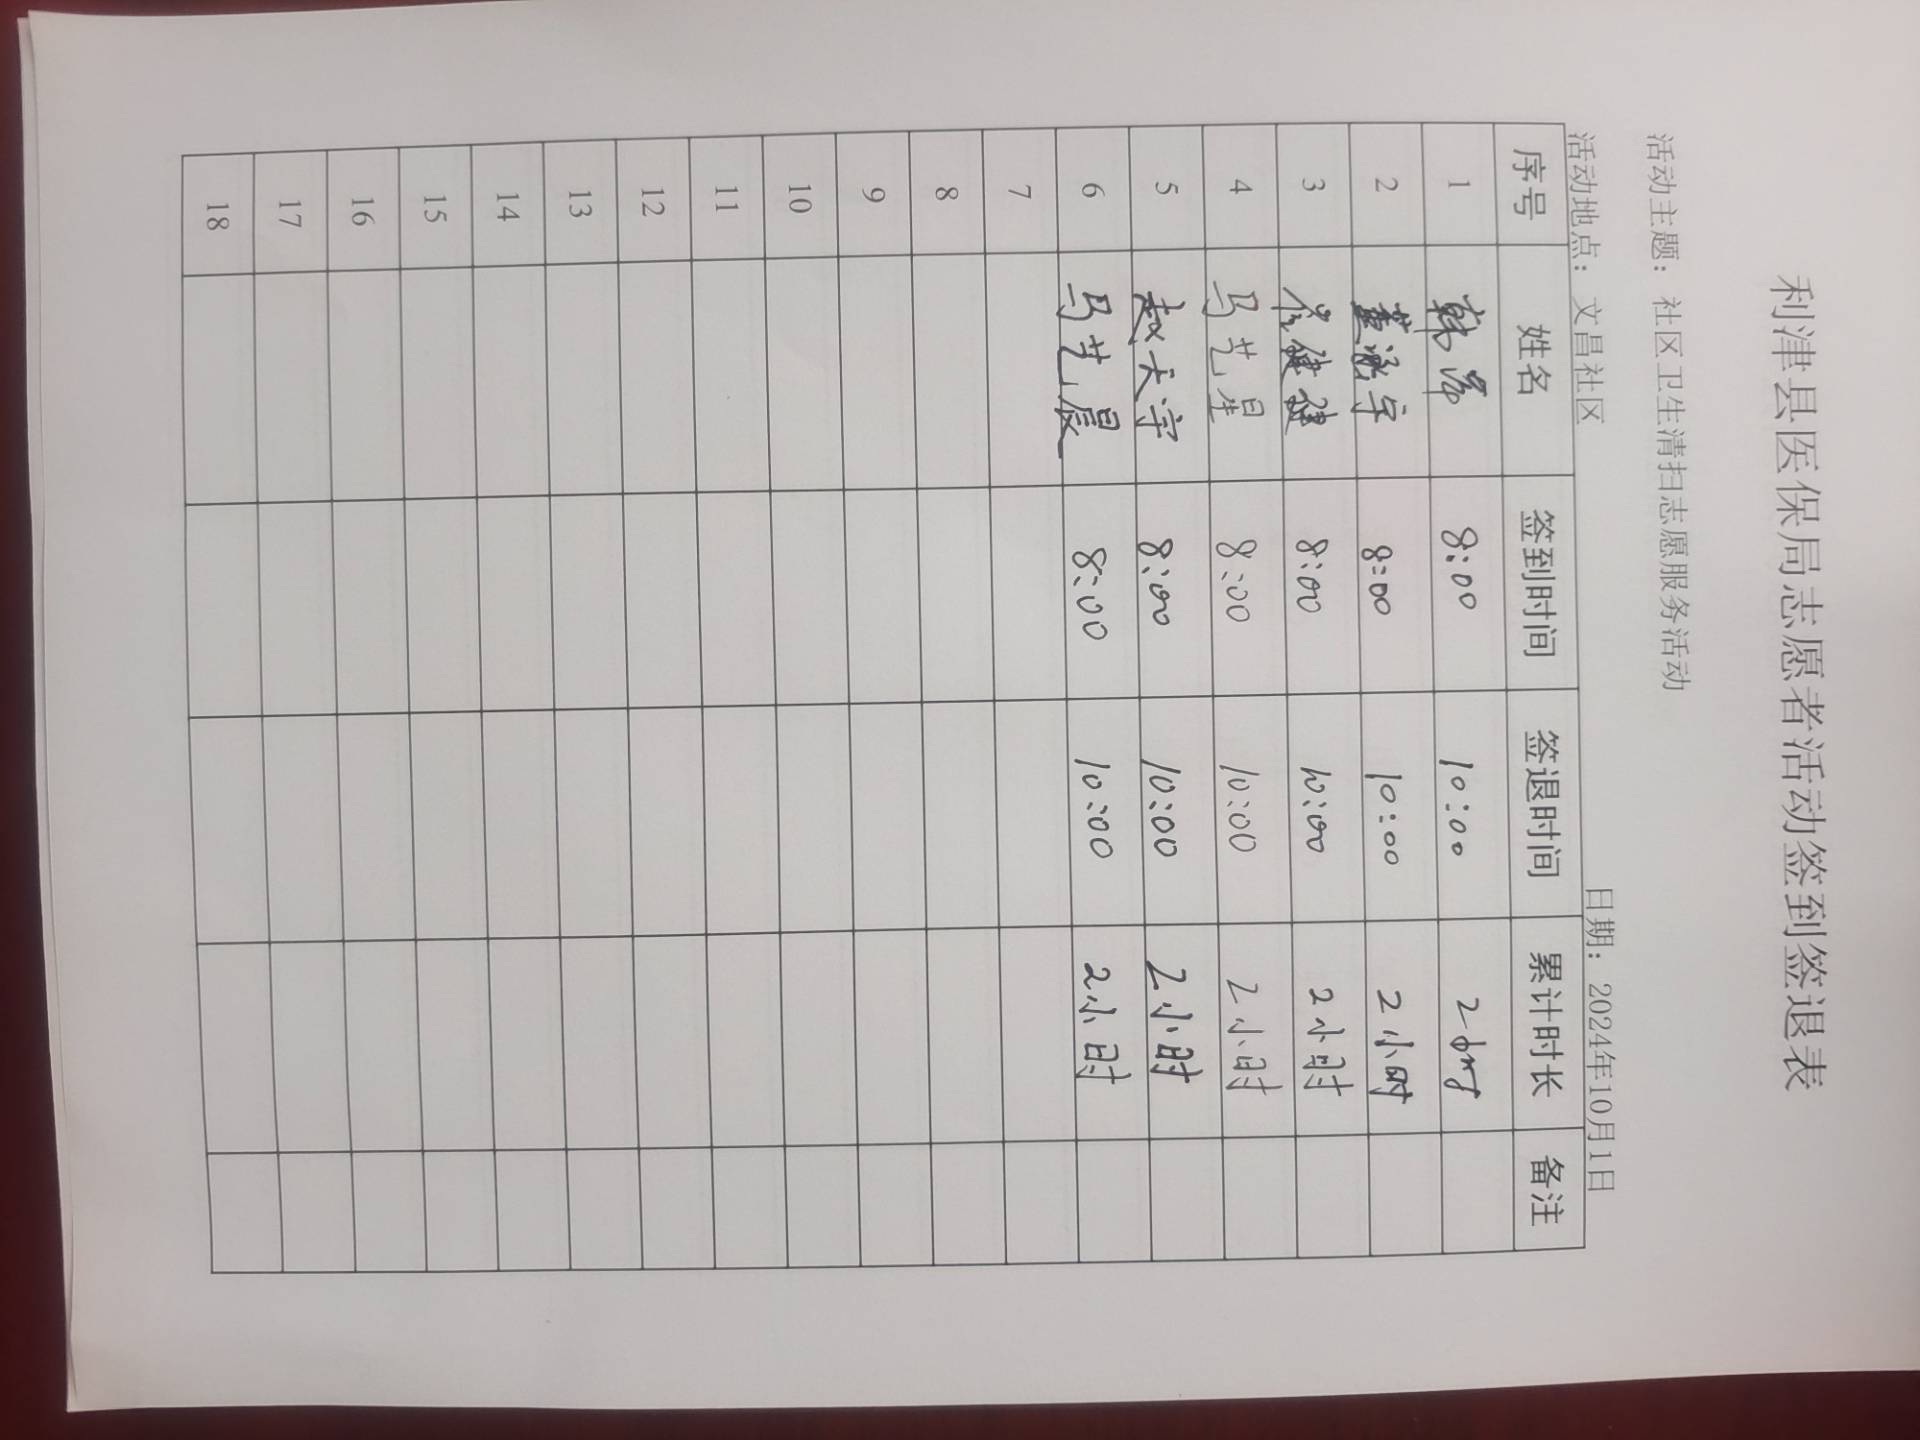 利津县医保局志愿者活动签到签退表
活动主题：社区卫生清扫志愿服务活动
活动地点：文昌社区 日期：2024年10月1日
序号 姓名 签到时间 签退时间 累计时长 备注
1 8:00 10:00
2 董浴宇 8:00 10:00 2小时
3 崔健健 8:00 10:00 2小时
4 马艺星 8:00 10:00 2小时
5 赵天宇 8:00 10:00 2小时
6 马艺晨 8:00 10:00 2小时
7
8
9
10
11
12
13
14
15
16
17
18